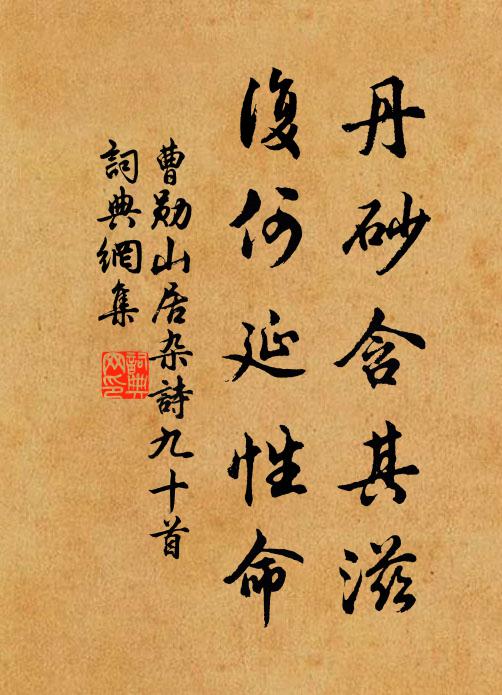 丹砂含其滋
復何延性命
曹勋山居杂詩九十首
詞典網集
詞典网印